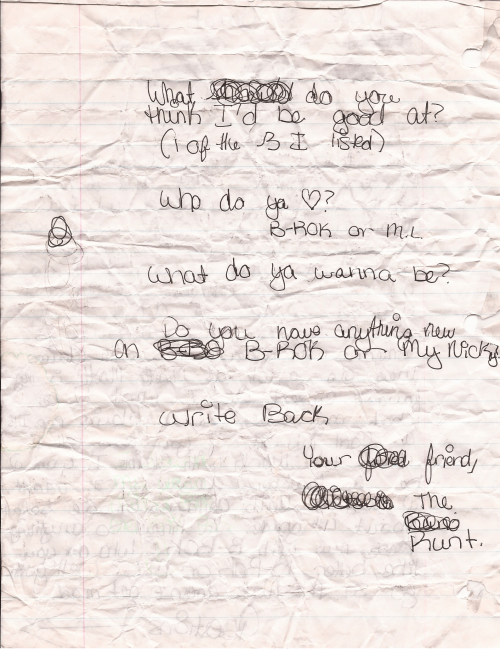 What do you
think I'd be good at?
(1 of the 3 I listed)
Who do ya ♡?
B-ROK or M.L.
What do ya wanna be?
Do you have anything new
on B-ROK or My Nicky
Write Back
Your friend,
The
Runt.